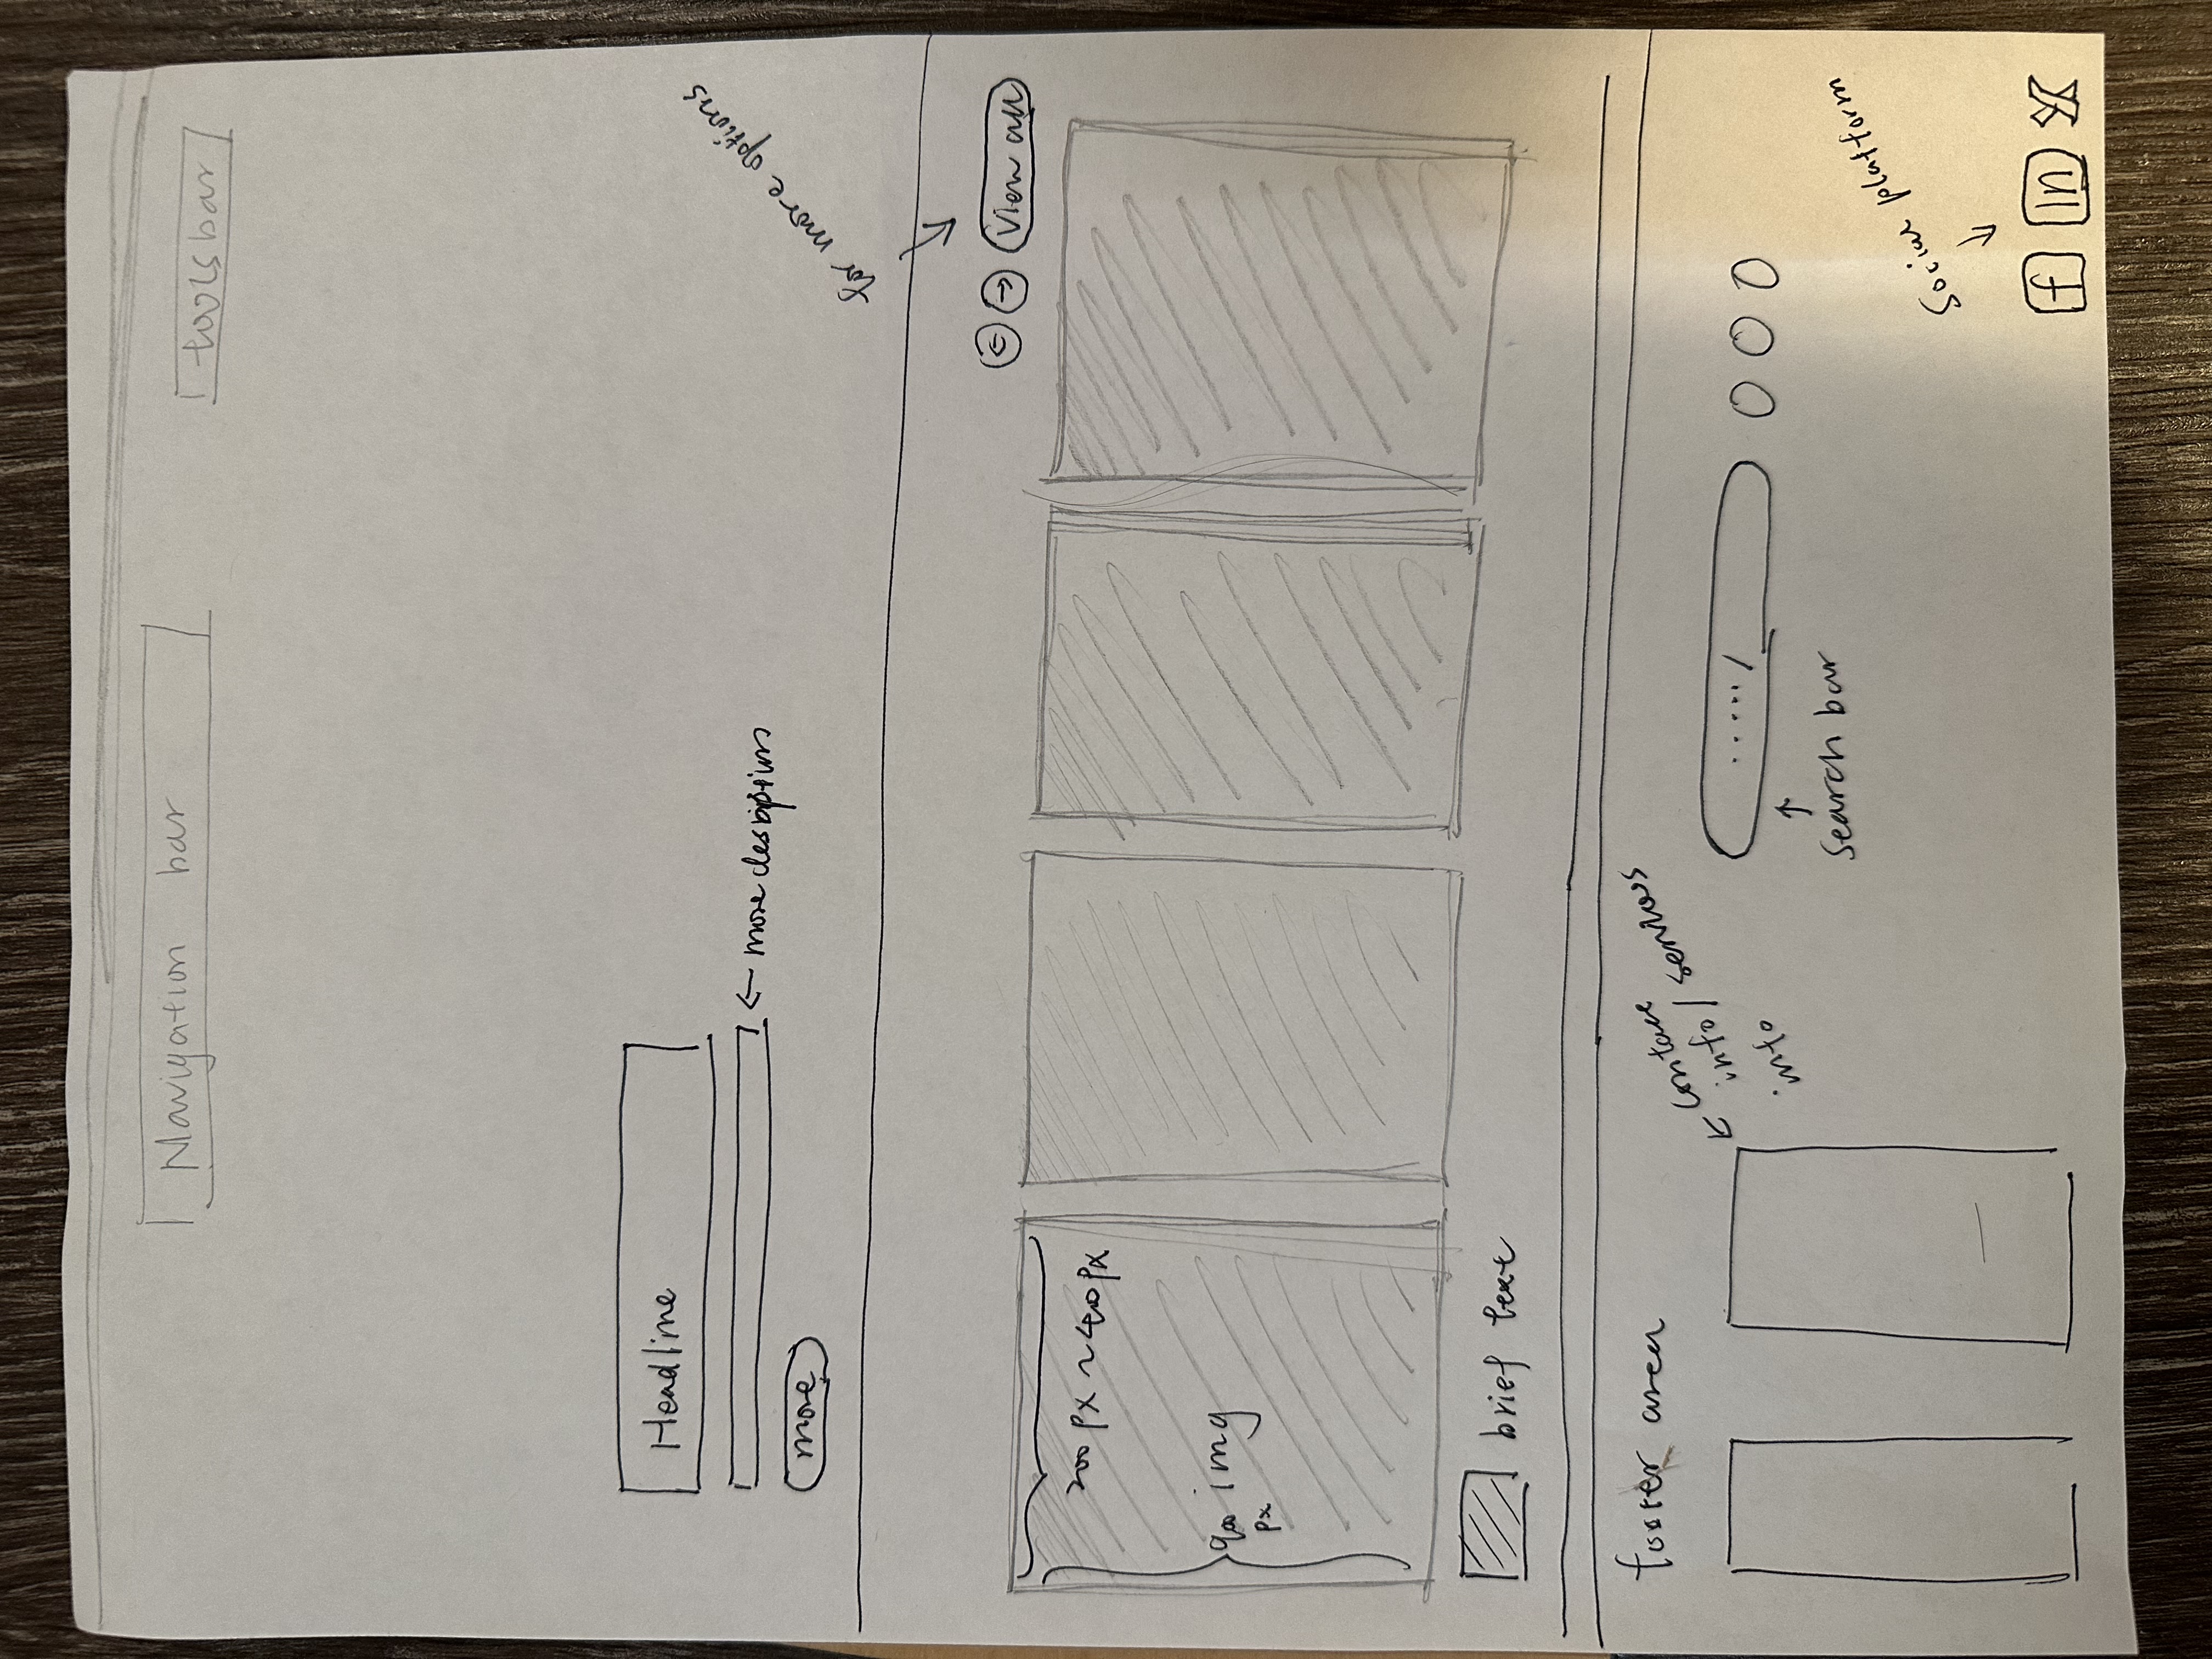 Navigation bar
toolsbar
Headline
← more desciptions
more
for more options
↓
← → View all
200 px ~ 400 px
900 img
px
brief text
footer area
← contact
info / services
info
...../
↑
Search bar
Social platform
↓
f in X